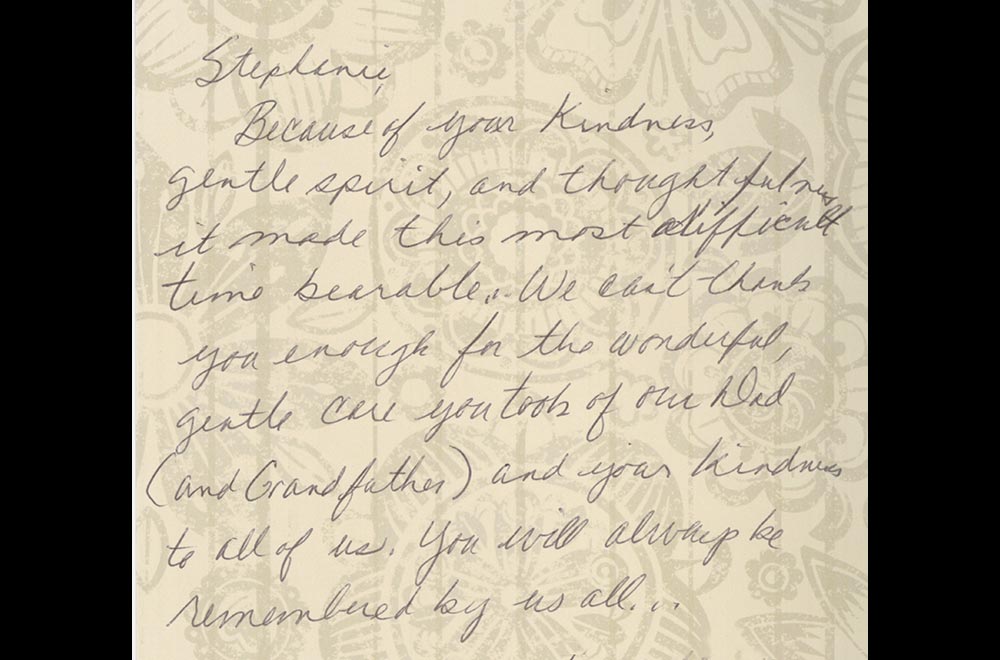 Stephanie,
Because of your Kindness,
gentle spirit, and thoughtfulness
it made this most difficult
time bearable... We can't thank
you enough for the wonderful,
gentle care you took of our Dad
(and Grandfather) and your kindness
to all of us. You will always be
remembered by us all...